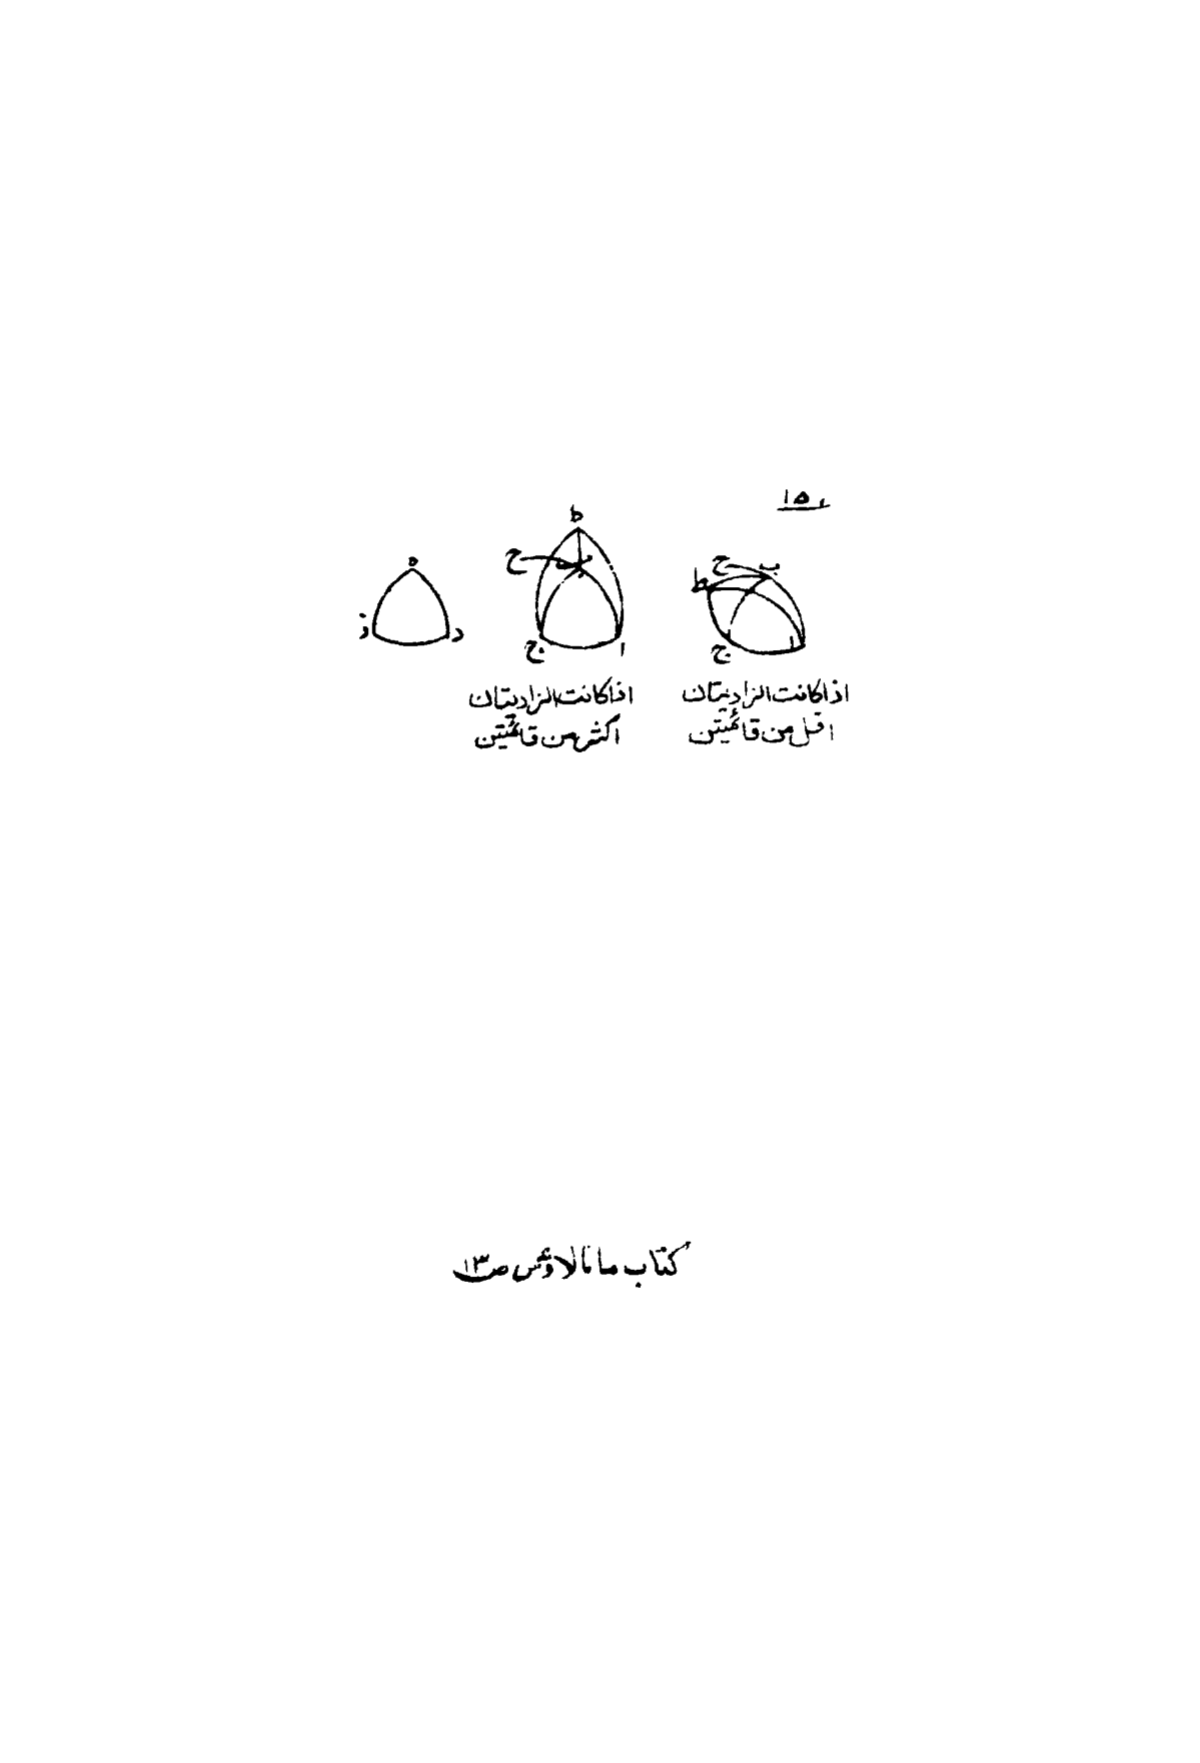 ١٥١
ط
ح
ب
ج
ا
ط
ح
ب
ج
ا
ه
ز
د
اذا كانت الزاويتان
اقل من قائمتين
اذا كانت الزاويتان
اكثر من قائمتين
كتاب مانالاوس ص١٣